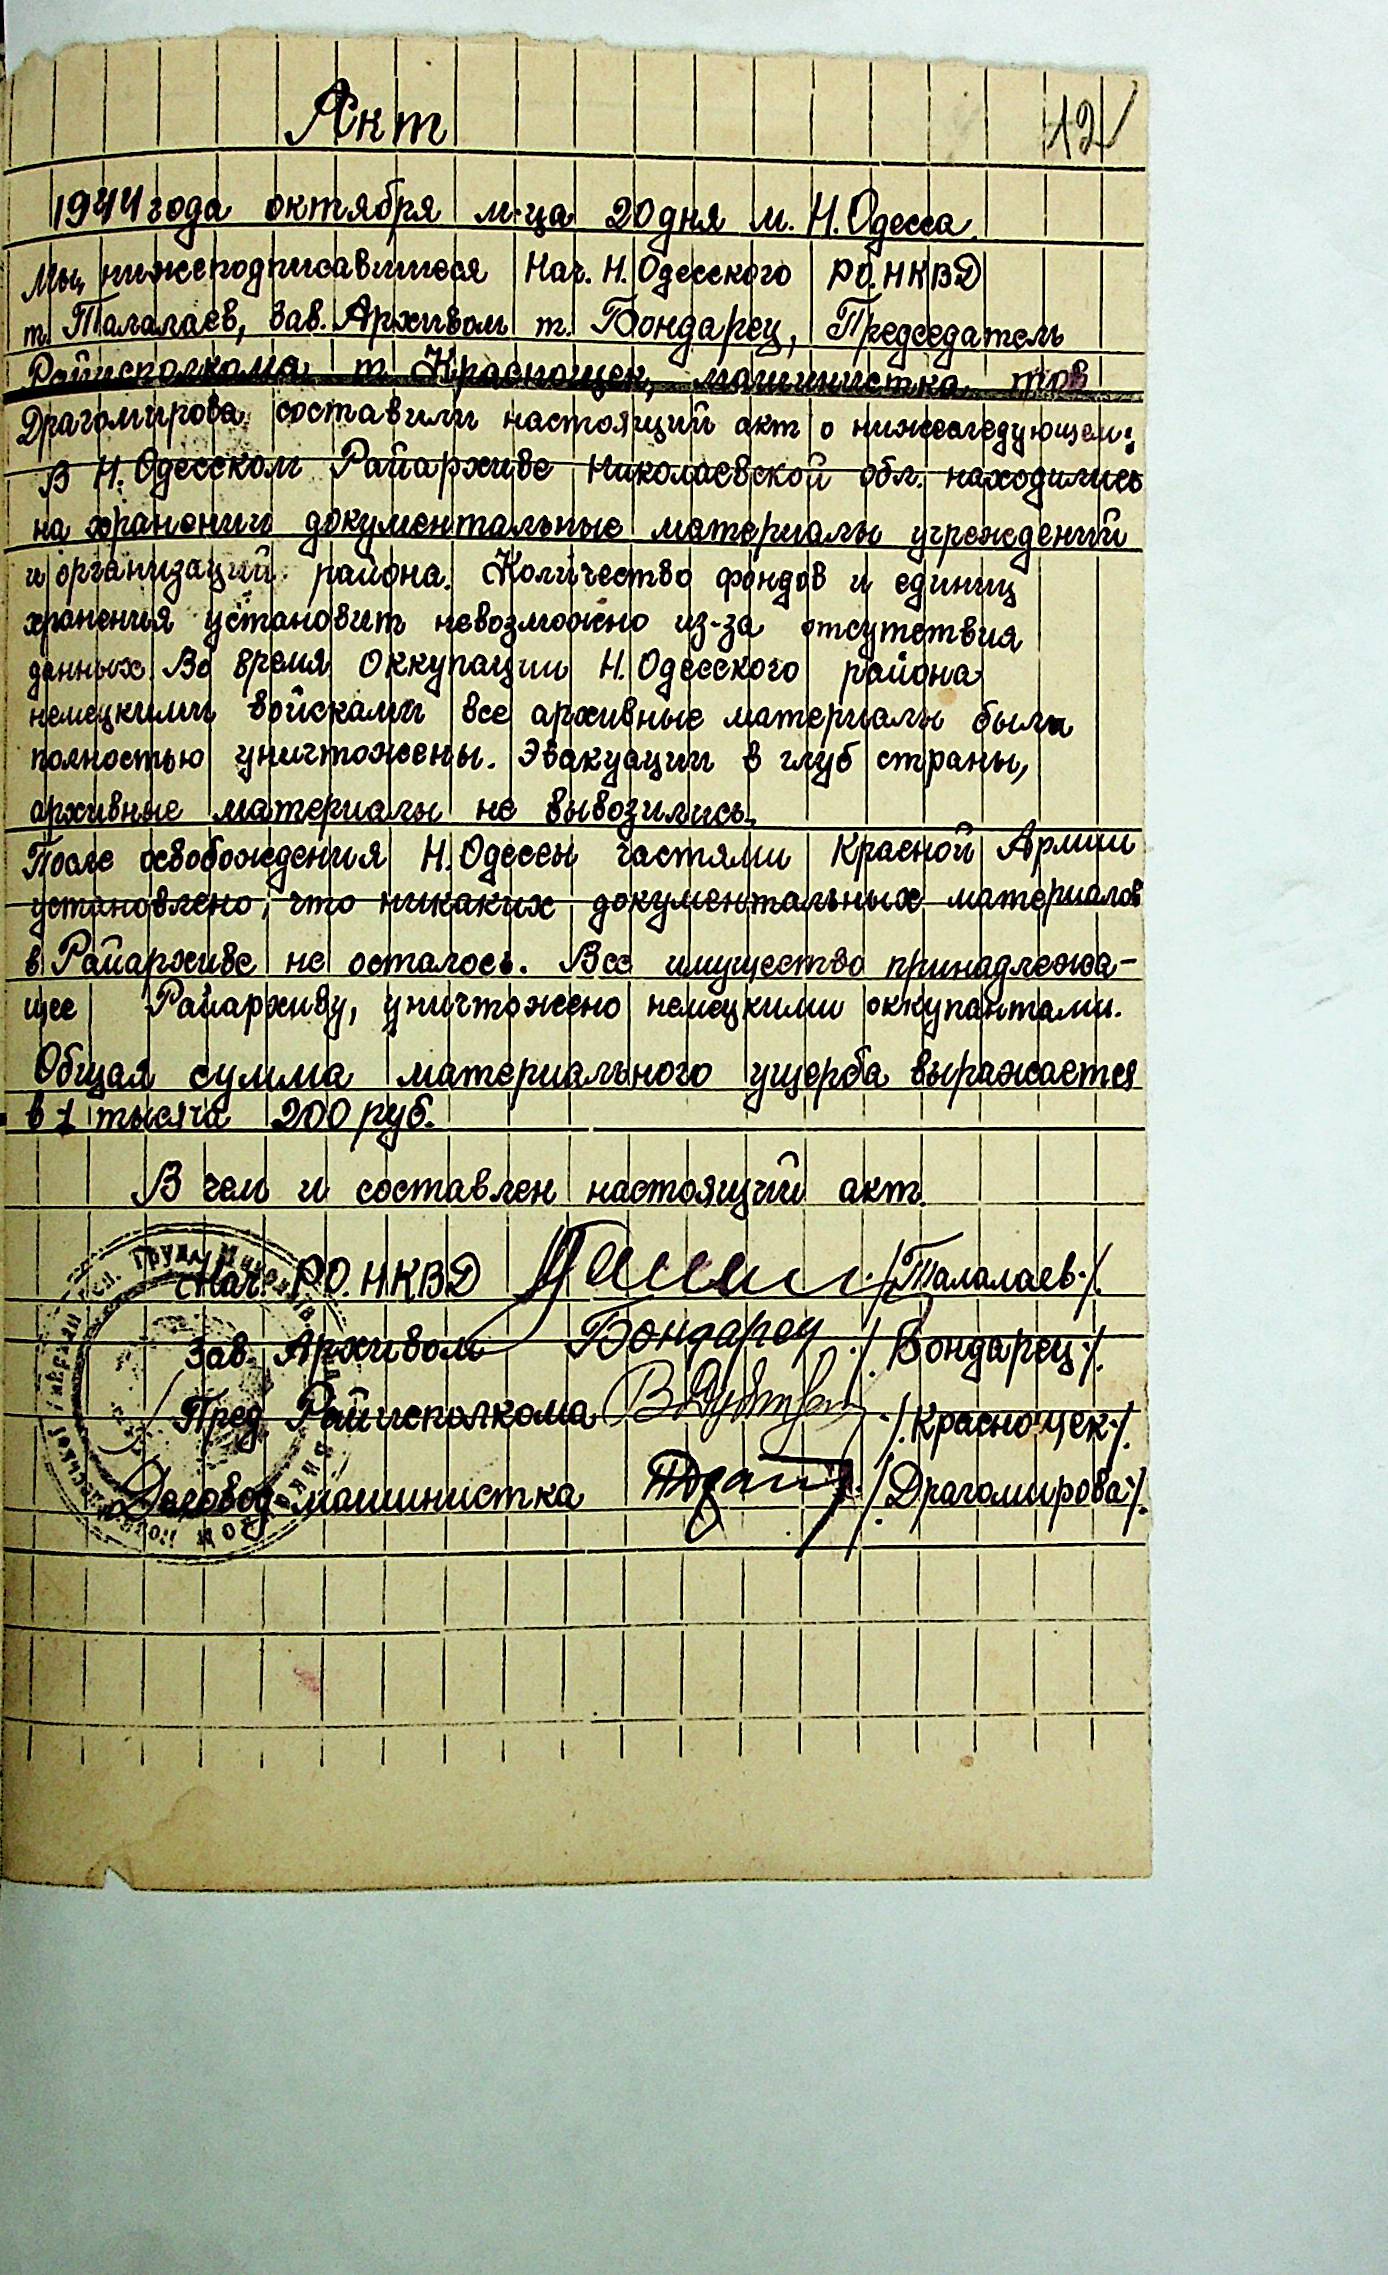 Акт
12
1944 года октября м-ца 20 дня м. Н. Одесса.
Мы, нижеподписавшиеся Нач. Н. Одесского РО. НКВД
т. Талалаев, Зав. Архивом т. Бондарец, Председатель
Райисполкома т. Краснощек, машинистка тов
Драгомирова составили настоящий акт о нижеследующем:
В Н. Одесском Райархиве Николаевской обл. находились
на хранении документальные материалы учреждений
и организаций района. Количество фондов и единиц
хранения установит невозможно из-за отсутствия
данных. Во время оккупации Н. Одесского района
немецкими войсками все архивные материалы были
полностью уничтожены. Эвакуации в глуб страны,
архивные материалы не вывозились.
После освобождения Н. Одессы частями Красной Армии
установлено, что никаких документальных материалов
в Райархиве не осталось. Все имущество принадлежа-
щее Райархиву, уничтожено немецкими оккупантами.
Общая сумма материального ущерба выражается
в 1 тысяча 200 руб.
В чем и составлен настоящий акт.
Нач. РО. НКВД /Талалаев/.
Зав. Архивом Бондарец /Бондарец/.
Пред Райисполкома /Краснощек/.
Деловод-машинистка /Драгомирова/.